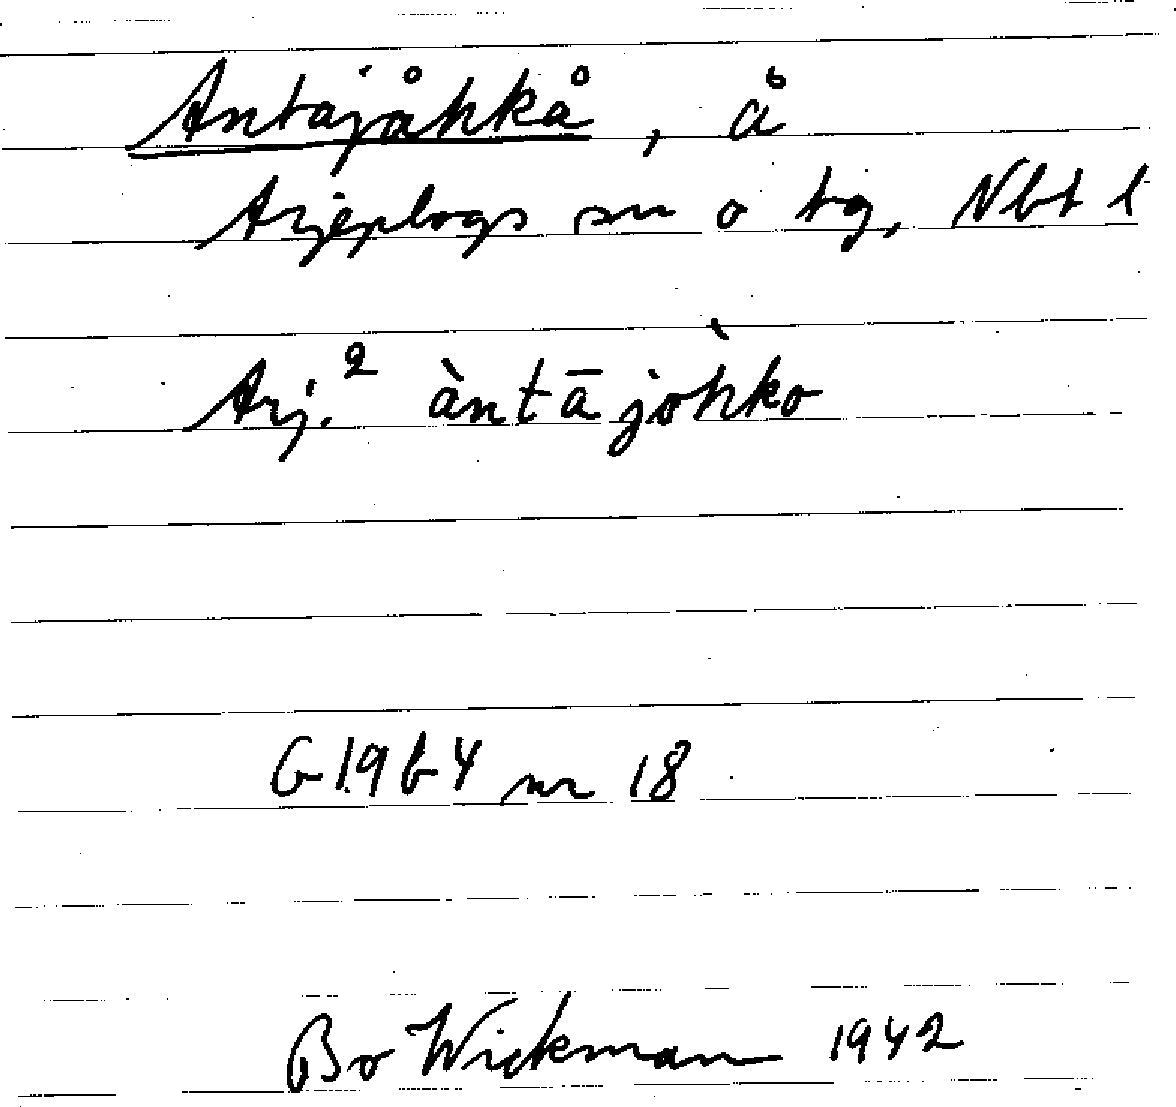 Antajåhkå, å
Arjeplogs sn o tg, Nbt l
Arj.² àntājòhko
G 1964 nr 18
Bo Wickman 1942